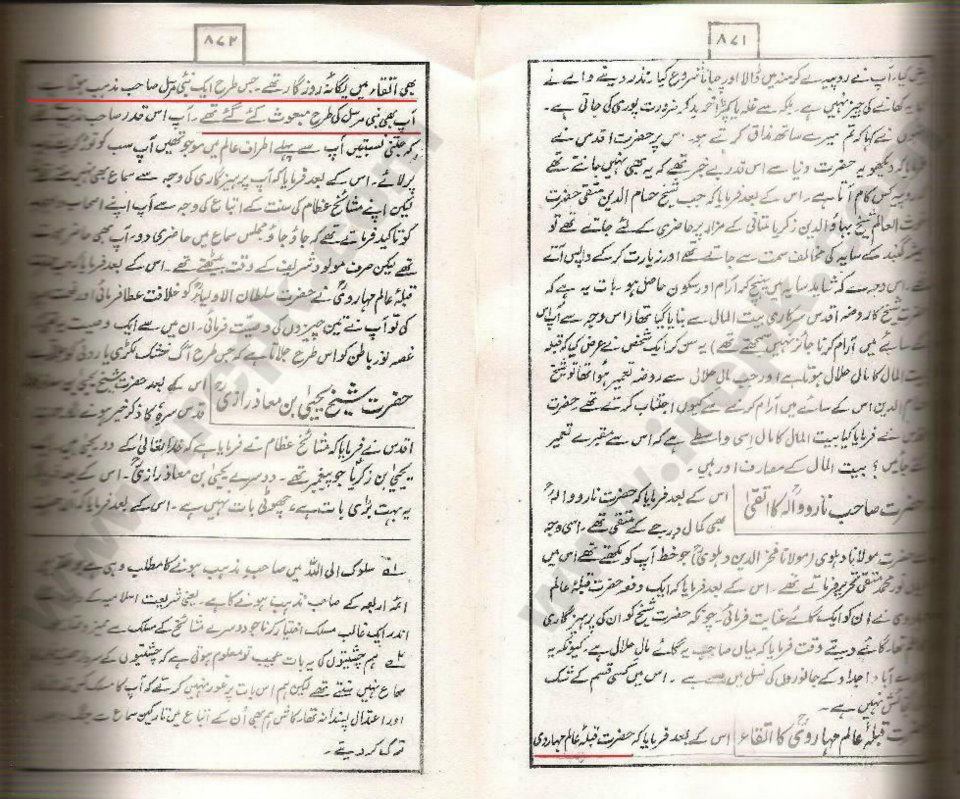 ۸۷۱
کیا، آپ نے روپیہ لے کر منہ میں ڈالا اور چبانا شروع کیا، نذر دینے والے نے
کھانے کی چیز نہیں ہے۔ بلکہ اس سے غلہ یا کپڑا خرید کر ضرورت پوری کی جاتی ہے۔
نے کہا کہ تم میرے ساتھ مذاق کرتے ہو۔ اس پر حضرت اقدس نے
کہ دیکھو یہ حضرت دنیا سے اس قدر بے خبر تھے کہ یہ بھی نہیں جانتے تھے
روپیہ کس کام آتا ہے۔ اس کے بعد فرمایا کہ جب شیخ حسام الدین متقی حضرت
العالم شیخ بہاؤ الدین زکریا ملتانی کے مزار پر حاضری کے لئے جاتے تھے تو
گنبد کے سایہ کی مخالف سمت سے جاتے تھے اور زیارت کر کے واپس آتے
اس وجہ سے کہ شاید سایہ اس شیخ کو آرام اور سکون حاصل ہو۔ بات یہ ہے کہ
شیخ کا روضہ اقدس سرکاری بیت المال سے بنایا گیا تھا (اس وجہ سے آپ اس
کے سایے میں آرام کرنا جائز نہیں سمجھتے تھے) یہ سن کر ایک شخص نے عرض کیا کہ قبلہ
بیت المال کا مال حلال ہوتا ہے اور جب مال حلال سے روضہ تعمیر ہوا تھا تو شیخ
حسام الدین اس کے سایے میں آرام کرنے سے کیوں اجتناب کرتے تھے حضرت
اقدس نے فرمایا کیا بیت المال کا مال اسی واسطے ہے کہ اس سے مقبرے تعمیر
جائیں؟ بیت المال کے مصارف اور ہیں۔
حضرت صاحب ناروواله کا اتقیٰ
اس کے بعد فرمایا کہ حضرت نارووالہؒ
بھی کمال درجے کے متقی تھے۔ اسی وجہ
سے حضرت مولانا دہلوی (مولانا فخر الدین دہلویؒ) جو خط آپ کو لکھتے تھے اس میں
نور محمد متقی تحریر فرماتے تھے۔ اس کے بعد فرمایا کہ ایک دفعہ حضرت قبلۂ عالم
نے ان کو ایک گائے عنایت فرمائی۔ چونکہ حضرت شیخ کو ان کی پرہیزگاری
تھا گائے دیتے وقت فرمایا کہ میاں صاحب یہ گائے مال حلال ہے۔ کیونکہ یہ
آباؤ اجداد کے جانوروں کی نسل میں سے ہے۔ اس میں کسی قسم کے شک
نہیں ہے۔
حضرت قبلۂ عالم مہارویؒ کا اتقاء
اس کے بعد فرمایا کہ حضرت قبلۂ عالم مہاروی
۸۷۲
بھی اتقاء میں یگانۂ روزگار تھے۔ جس طرح ایک نبی مرسل صاحب مذہب ہوتا ہے
آپ بھی نبی مرسل کی طرح مبعوث کئے گئے تھے۔ آپ اس قدر صاحب مذہب تھے
کہ جتنی نسبتیں آپ سے پہلے اطراف عالم میں موجود تھیں آپ سب کو توڑ کر
پر لائے۔ اس کے بعد فرمایا کہ آپ پرہیزگاری کی وجہ سے سماع بھی نہیں سنتے تھے
لیکن اپنے مشائخ عظام کی سنت کے اتباع کی وجہ سے آپ اپنے اصحاب
کو تاکید فرماتے تھے کہ جاؤ جاؤ مجلس سماع میں حاضری دو۔ آپ بھی حاضر ہوتے
تھے لیکن صرف مولود شریف کے وقت بیٹھتے تھے۔ اس کے بعد فرمایا کہ جب
قبلۂ عالم مہارویؒ نے حضرت سلطان الاولیاءؒ کو خلافت عطا فرمائی اور رخصت
کی تو آپ نے تین چیزوں کی وصیت فرمائی۔ ان میں سے ایک وصیت یہ تھی کہ
غصہ نور باطن کو اس طرح جلاتا ہے کہ جس طرح آگ خشک لکڑی یا روئی کو جلاتی
حضرت شیخ یحییٰ بن معاذ رازیؒ
اس کے بعد حضرت شیخ یحییٰ بن معاذ
قدس سرہٗ کا ذکر خیر ہونے لگا۔ حضرت
اقدس نے فرمایا کہ مشائخ عظام نے فرمایا ہے کہ خدا تعالیٰ کے دو یحییٰ ہیں ایک
یحییٰ بن زکریاؑ جو پیغمبر تھے۔ دوسرے یحییٰ بن معاذ رازیؒ۔ اس کے بعد
یہ بہت بڑی بات ہے، چھوٹی بات نہیں ہے۔ اس کے بعد فرمایا کہ
لہ سلوک الی اللہ میں صاحب مذہب ہونے کا مطلب وہی ہے جو
ائمہ اربعہ کے صاحب مذہب ہونے کا ہے۔ یعنی شریعت اسلامیہ کے
اندر ایک غالب مسلک اختیار کرنا جو دوسرے مشائخ کے مسلک سے ممیز
ہم چشتیوں کی یہ بات عجیب تو معلوم ہوتی ہے کہ چشتیوں کے سردار
سماع نہیں سنتے تھے لیکن ہم اس بات پر غور نہیں کرتے کہ آپ کا مسلک کس
اور اعتدال پسندانہ تھا۔ کاش ہم بھی اُن کے اتباع میں تارکین سماع سے جنگ
ترک کر دیتے۔